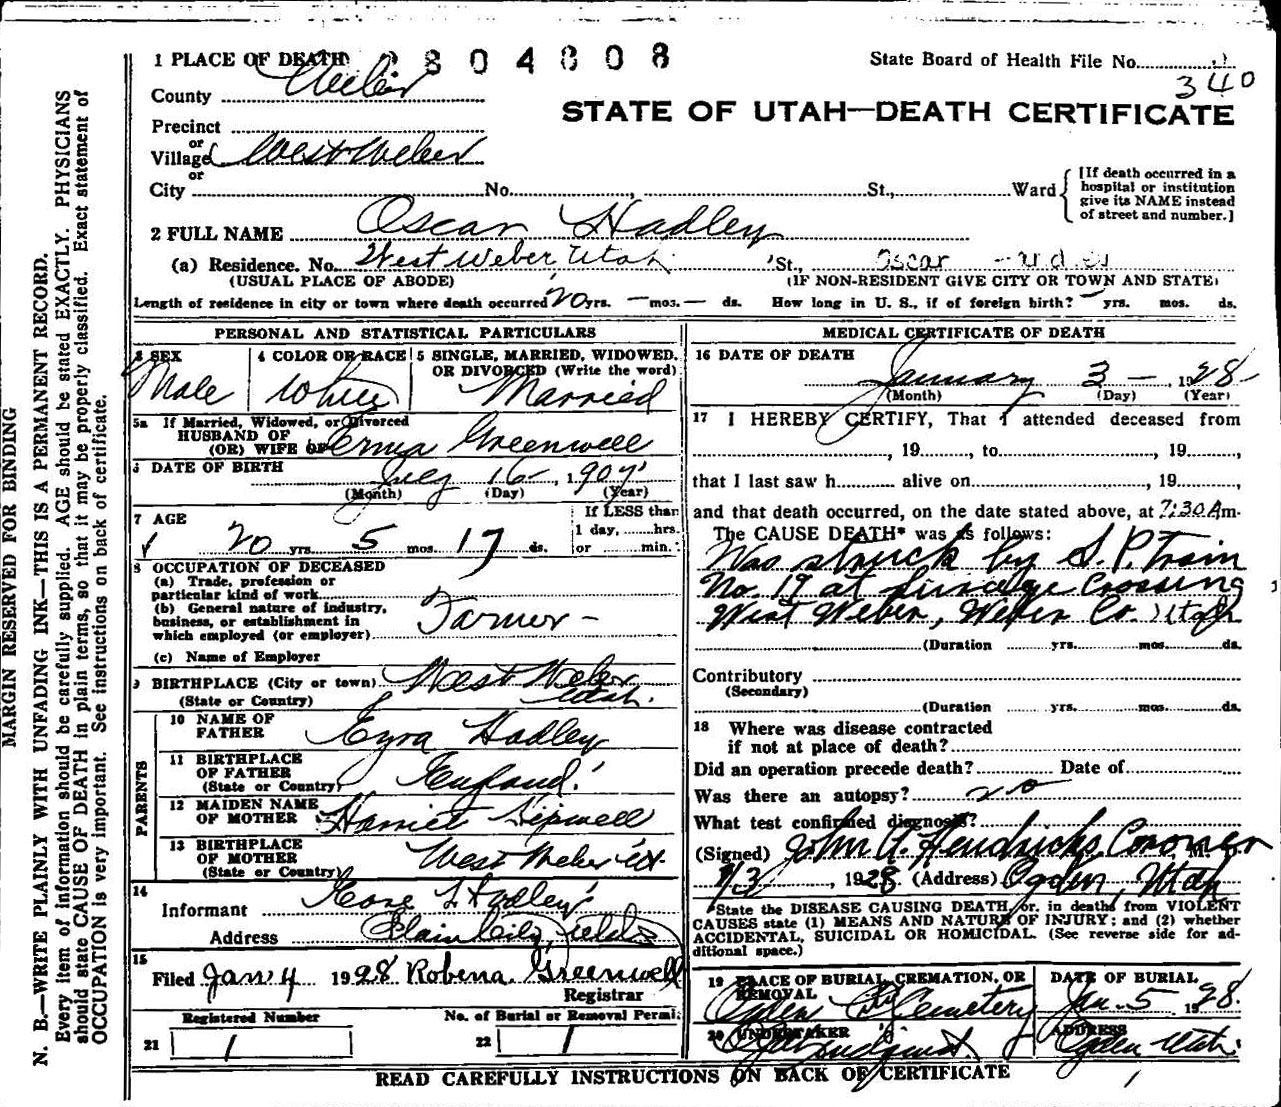 MARGIN RESERVED FOR BINDING
N. B.—WRITE PLAINLY WITH UNFADING INK—THIS IS A PERMANENT RECORD.
Every item of information should be carefully supplied. AGE should be stated EXACTLY. PHYSICIANS
should state CAUSE OF DEATH in plain terms, so that it may be properly classified. Exact statement of
OCCUPATION is very important. See instructions on back of certificate.
1 PLACE OF DEATH 804808
State Board of Health File No. 340
County Weber
STATE OF UTAH—DEATH CERTIFICATE
Precinct
or
Village West Weber
or
City No. , St., Ward
[If death occurred in a
hospital or institution
give its NAME instead
of street and number.]
2 FULL NAME Oscar Hadley
(a) Residence. No. West Weber Utah St., Oscar
(USUAL PLACE OF ABODE) (IF NON-RESIDENT GIVE CITY OR TOWN AND STATE)
Length of residence in city or town where death occurred 20 yrs. — mos. — ds. How long in U. S., if of foreign birth? — yrs. mos. ds.
PERSONAL AND STATISTICAL PARTICULARS
3 SEX
Male
4 COLOR OR RACE
White
5 SINGLE, MARRIED, WIDOWED,
OR DIVORCED (Write the word)
Married
5a If Married, Widowed, or Divorced
HUSBAND OF
(OR) WIFE OF Erma Greenwell
6 DATE OF BIRTH July 16, 1907
(Month) (Day) (Year)
7 AGE
20 yrs. 5 mos. 17 ds.
If LESS than
1 day, hrs.
or min.
8 OCCUPATION OF DECEASED
(a) Trade, profession or
particular kind of work
(b) General nature of industry,
business, or establishment in
which employed (or employer) Farmer -
(c) Name of Employer
9 BIRTHPLACE (City or town) West Weber
(State or Country) Utah.
PARENTS
10 NAME OF
FATHER Ezra Hadley
11 BIRTHPLACE
OF FATHER England
(State or Country)
12 MAIDEN NAME
OF MOTHER Harriet Sipwell
13 BIRTHPLACE
OF MOTHER West Weber Ut.
(State or Country)
14
Informant Hadley
Address Plain City,
15
Filed Jan 4 1928 Robena Greenwell
Registrar
Registered Number
No. of Burial or Removal Permit
21 1
22 1
MEDICAL CERTIFICATE OF DEATH
16 DATE OF DEATH
January 3 —, 1928
(Month) (Day) (Year)
17 I HEREBY CERTIFY, That I attended deceased from
, 19 , to , 19 ,
that I last saw h alive on , 19 ,
and that death occurred, on the date stated above, at 7:30 A m.
The CAUSE DEATH* was as follows:
Was struck by S. P. Train
No. 19 at Crossing
West Weber, Weber Co. Utah
(Duration yrs. mos. ds.
Contributory
(Secondary)
(Duration yrs. mos. ds.
18 Where was disease contracted
if not at place of death?
Did an operation precede death? Date of
Was there an autopsy? no
What test confirmed diagnosis?
(Signed) John A. Hendricks Coroner M. D.
1/3, 1928. (Address) Ogden, Utah
*State the DISEASE CAUSING DEATH, or, in deaths from VIOLENT
CAUSES state (1) MEANS AND NATURE OF INJURY; and (2) whether
ACCIDENTAL, SUICIDAL OR HOMICIDAL. (See reverse side for ad-
ditional space.)
19 PLACE OF BURIAL, CREMATION, OR
REMOVAL
Ogden City Cemetery
DATE OF BURIAL
Jan. 5 1928.
20 UNDERTAKER
Lindquist
ADDRESS
Ogden, Utah.
READ CAREFULLY INSTRUCTIONS ON BACK OF CERTIFICATE